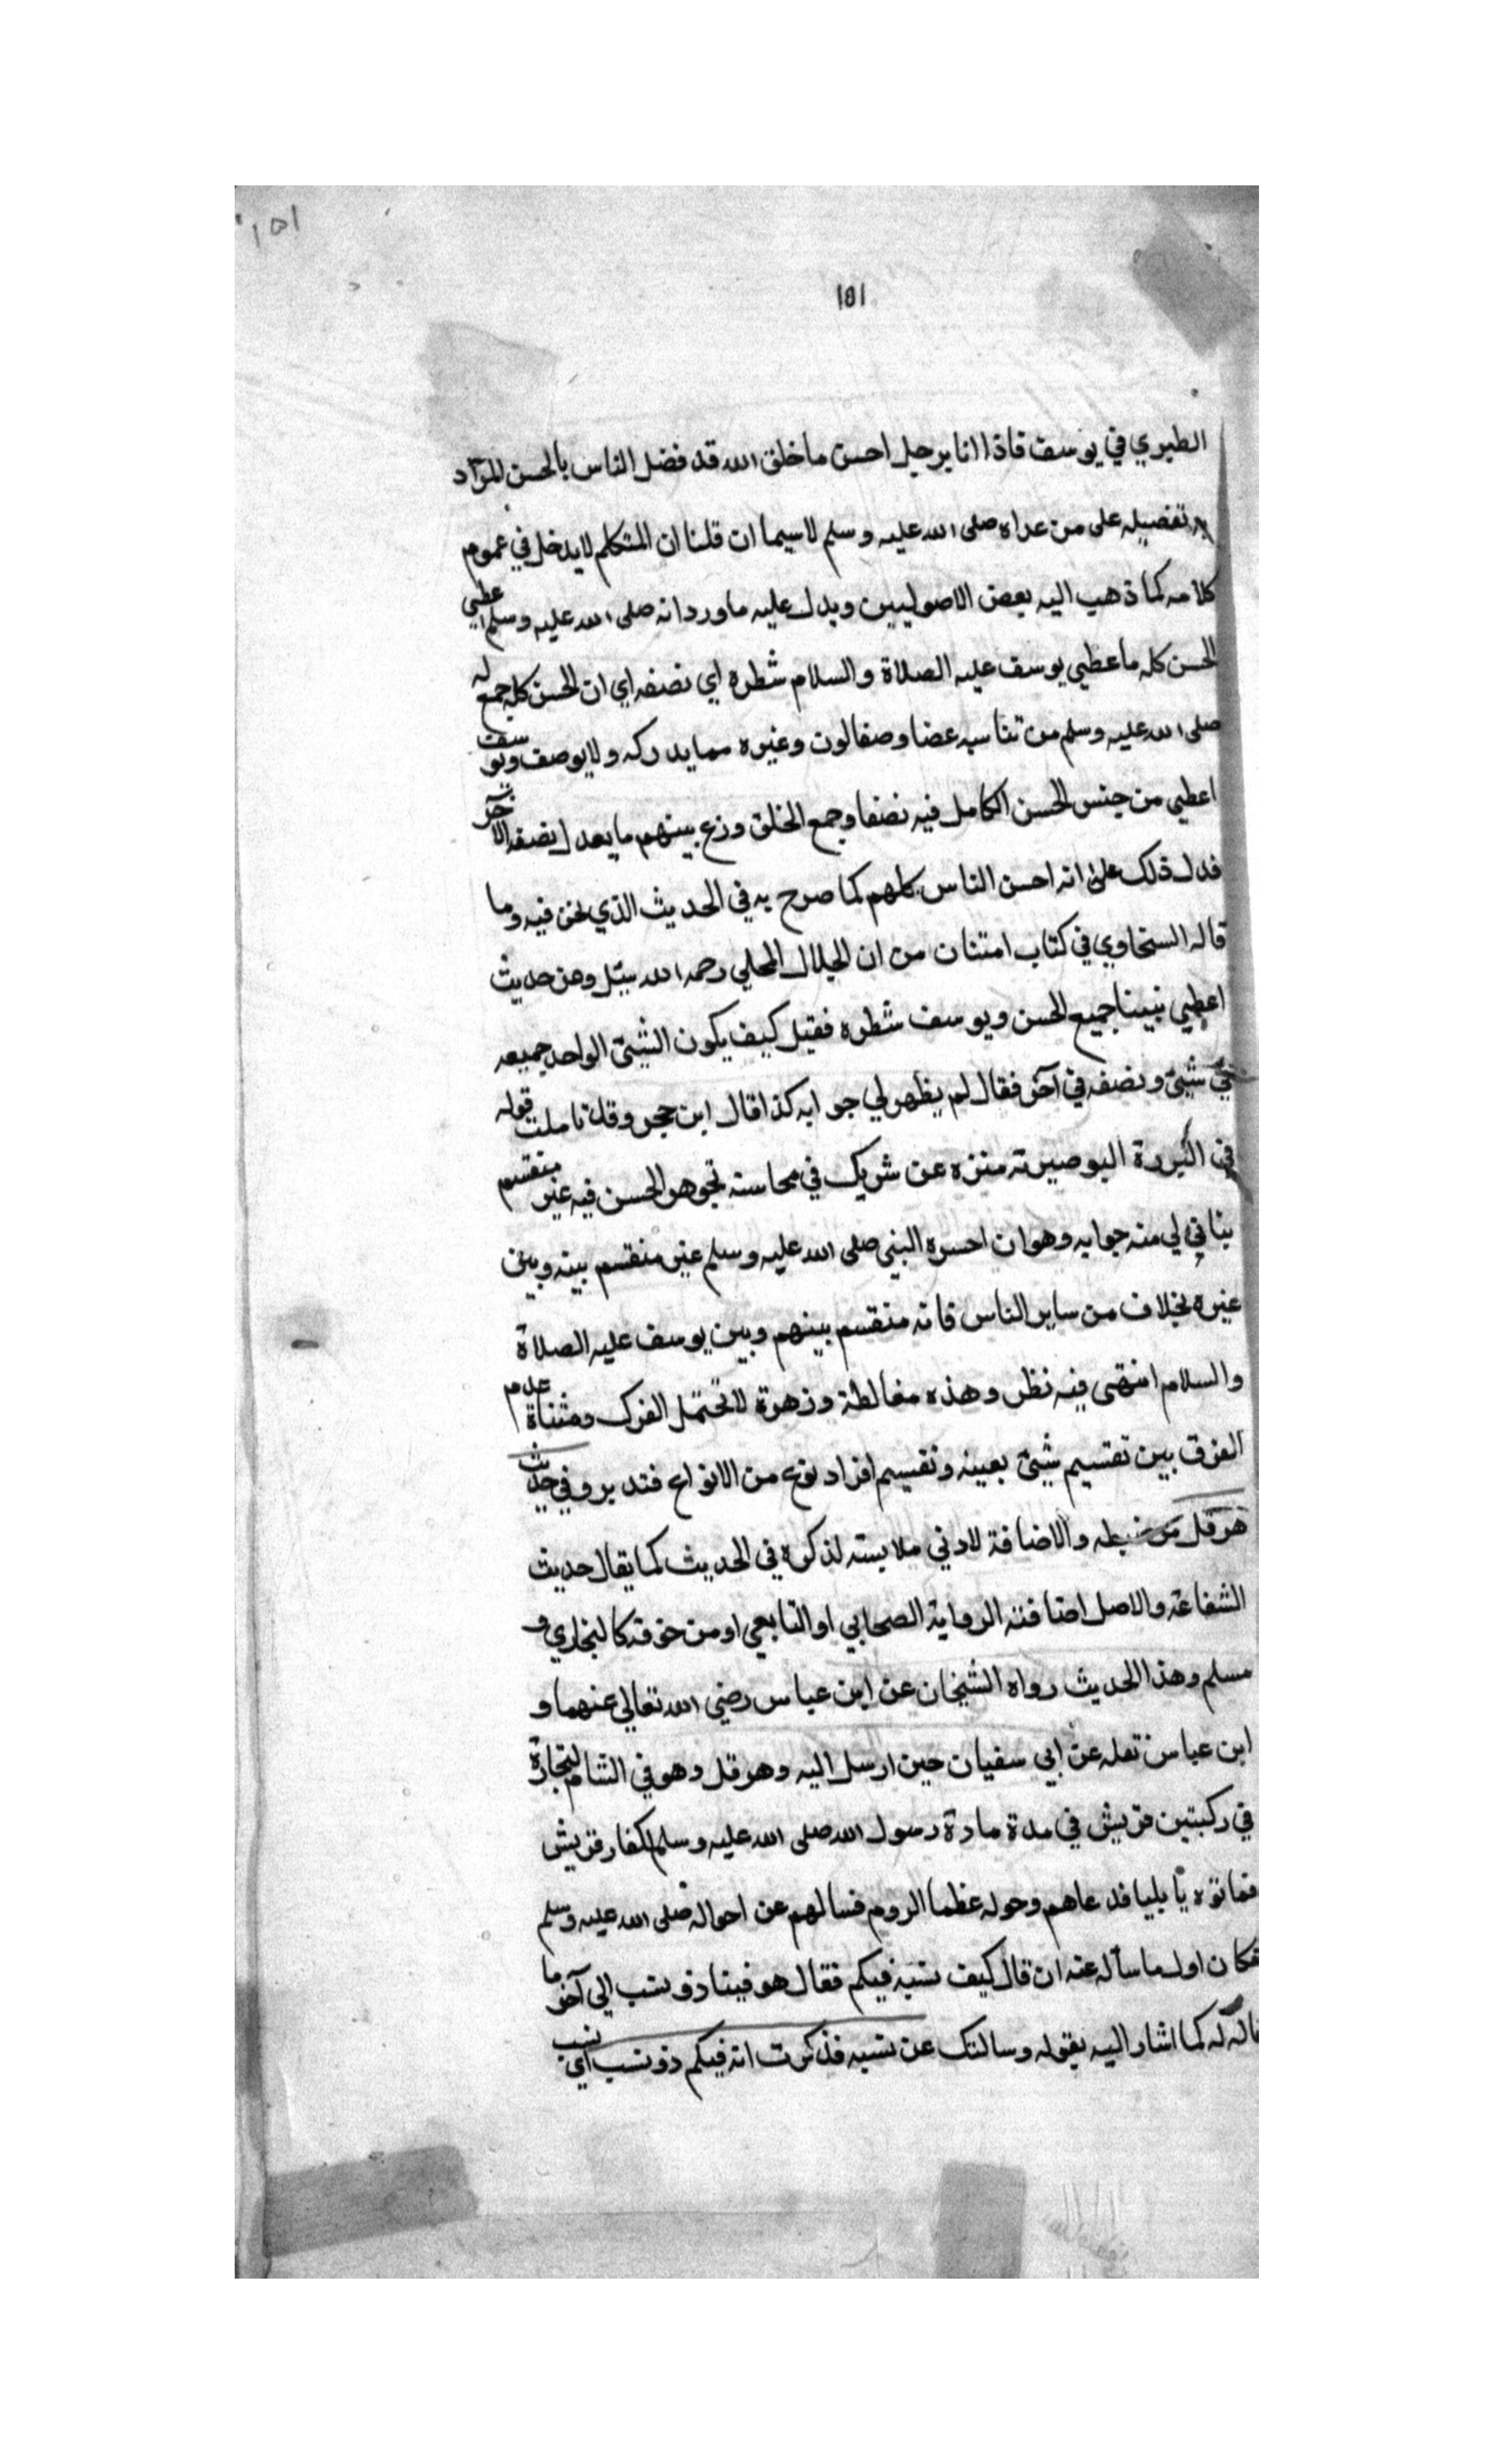 ١٥١
١٥١
الطبري في يوسف فاذا انا برجل احسن ما خلق الله قد فضل الناس بالحسن المراد
به تفضيله على من عداه صلى الله عليه وسلم لاسيما ان قلنا ان المتكلم لا يدخل في عموم
كلامه كما ذهب اليه بعض الاصوليين ويدل عليه ما ورد انه صلى الله عليه وسلم اعطي
الحسن كله ما عطي يوسف عليه الصلاة والسلام شطره اي نصفه اي ان الحسن كله جمع له
صلى الله عليه وسلم من تناسب عضا وصفا لون وغيره مما يدركه ولا يوصف ويوسف
اعطي من جنس الحسن الكامل فيه نصفا وجمع الخلق وزع بينهم ما يعدل نصفه الآخر
فدل ذلك على انه احسن الناس كلهم كما صرح به في الحديث الذي نحن فيه وما
قاله السخاوي في كتاب امتنان من ان الجلال المحلي رحمه الله سئل وعن حديث
اعطي نبينا جميع الحسن ويوسف شطره فقيل كيف يكون الشيئ الواحد جميعه
في شيئ ونصفه في آخر فقال لم يظهر لي جوابه كذا قال ابن حجر وقد تاملت قوله
في البردة البوصيرية منزه عن شريك في محاسنه فجوهر الحسن فيه غير منقسم
لي منه جوابه وهو ان النبي صلى الله عليه وسلم غير منقسم بينه وبين
غيره بخلاف من ساير الناس فانه منقسم بينهم وبين يوسف عليه الصلاة
والسلام انتهى فيه نظر وهذه مغالطة وزهرة لا تحتمل الفرك عدم
الفرق بين تقسيم شيئ بعينه وتقسيم افراد نوع من الانواع فتدبر وفي حديث
هرقل ضبطه والاضافة لادني ملابسته لذكره في الحديث كما يقال حديث
الشفاعة والاصل اضافته الرواية الصحابي او التابعي او من كالبخاري و
مسلم وهذا الحديث رواه الشيخان عن ابن عباس رضي الله تعالى عنهما و
ابن عباس نقله عن ابي سفيان حين ارسل اليه وهرقل وهو في الشام لتجارة
في ركبتين قريش في مدة مادة رسول الله صلى الله عليه وسلم لكفار قريش
بايليا فدعاهم وحوله عظما الروم فسالهم عن احواله صلى الله عليه وسلم
فكان اول ما سأله عنه ان قال كيف نسبه فيكم فقال هو فينا ذو نسب الى آخر ما
قاله له كما اشار اليه بقوله وسالتك عن نسبه فذكرت انه فيكم ذو نسب اي نسب